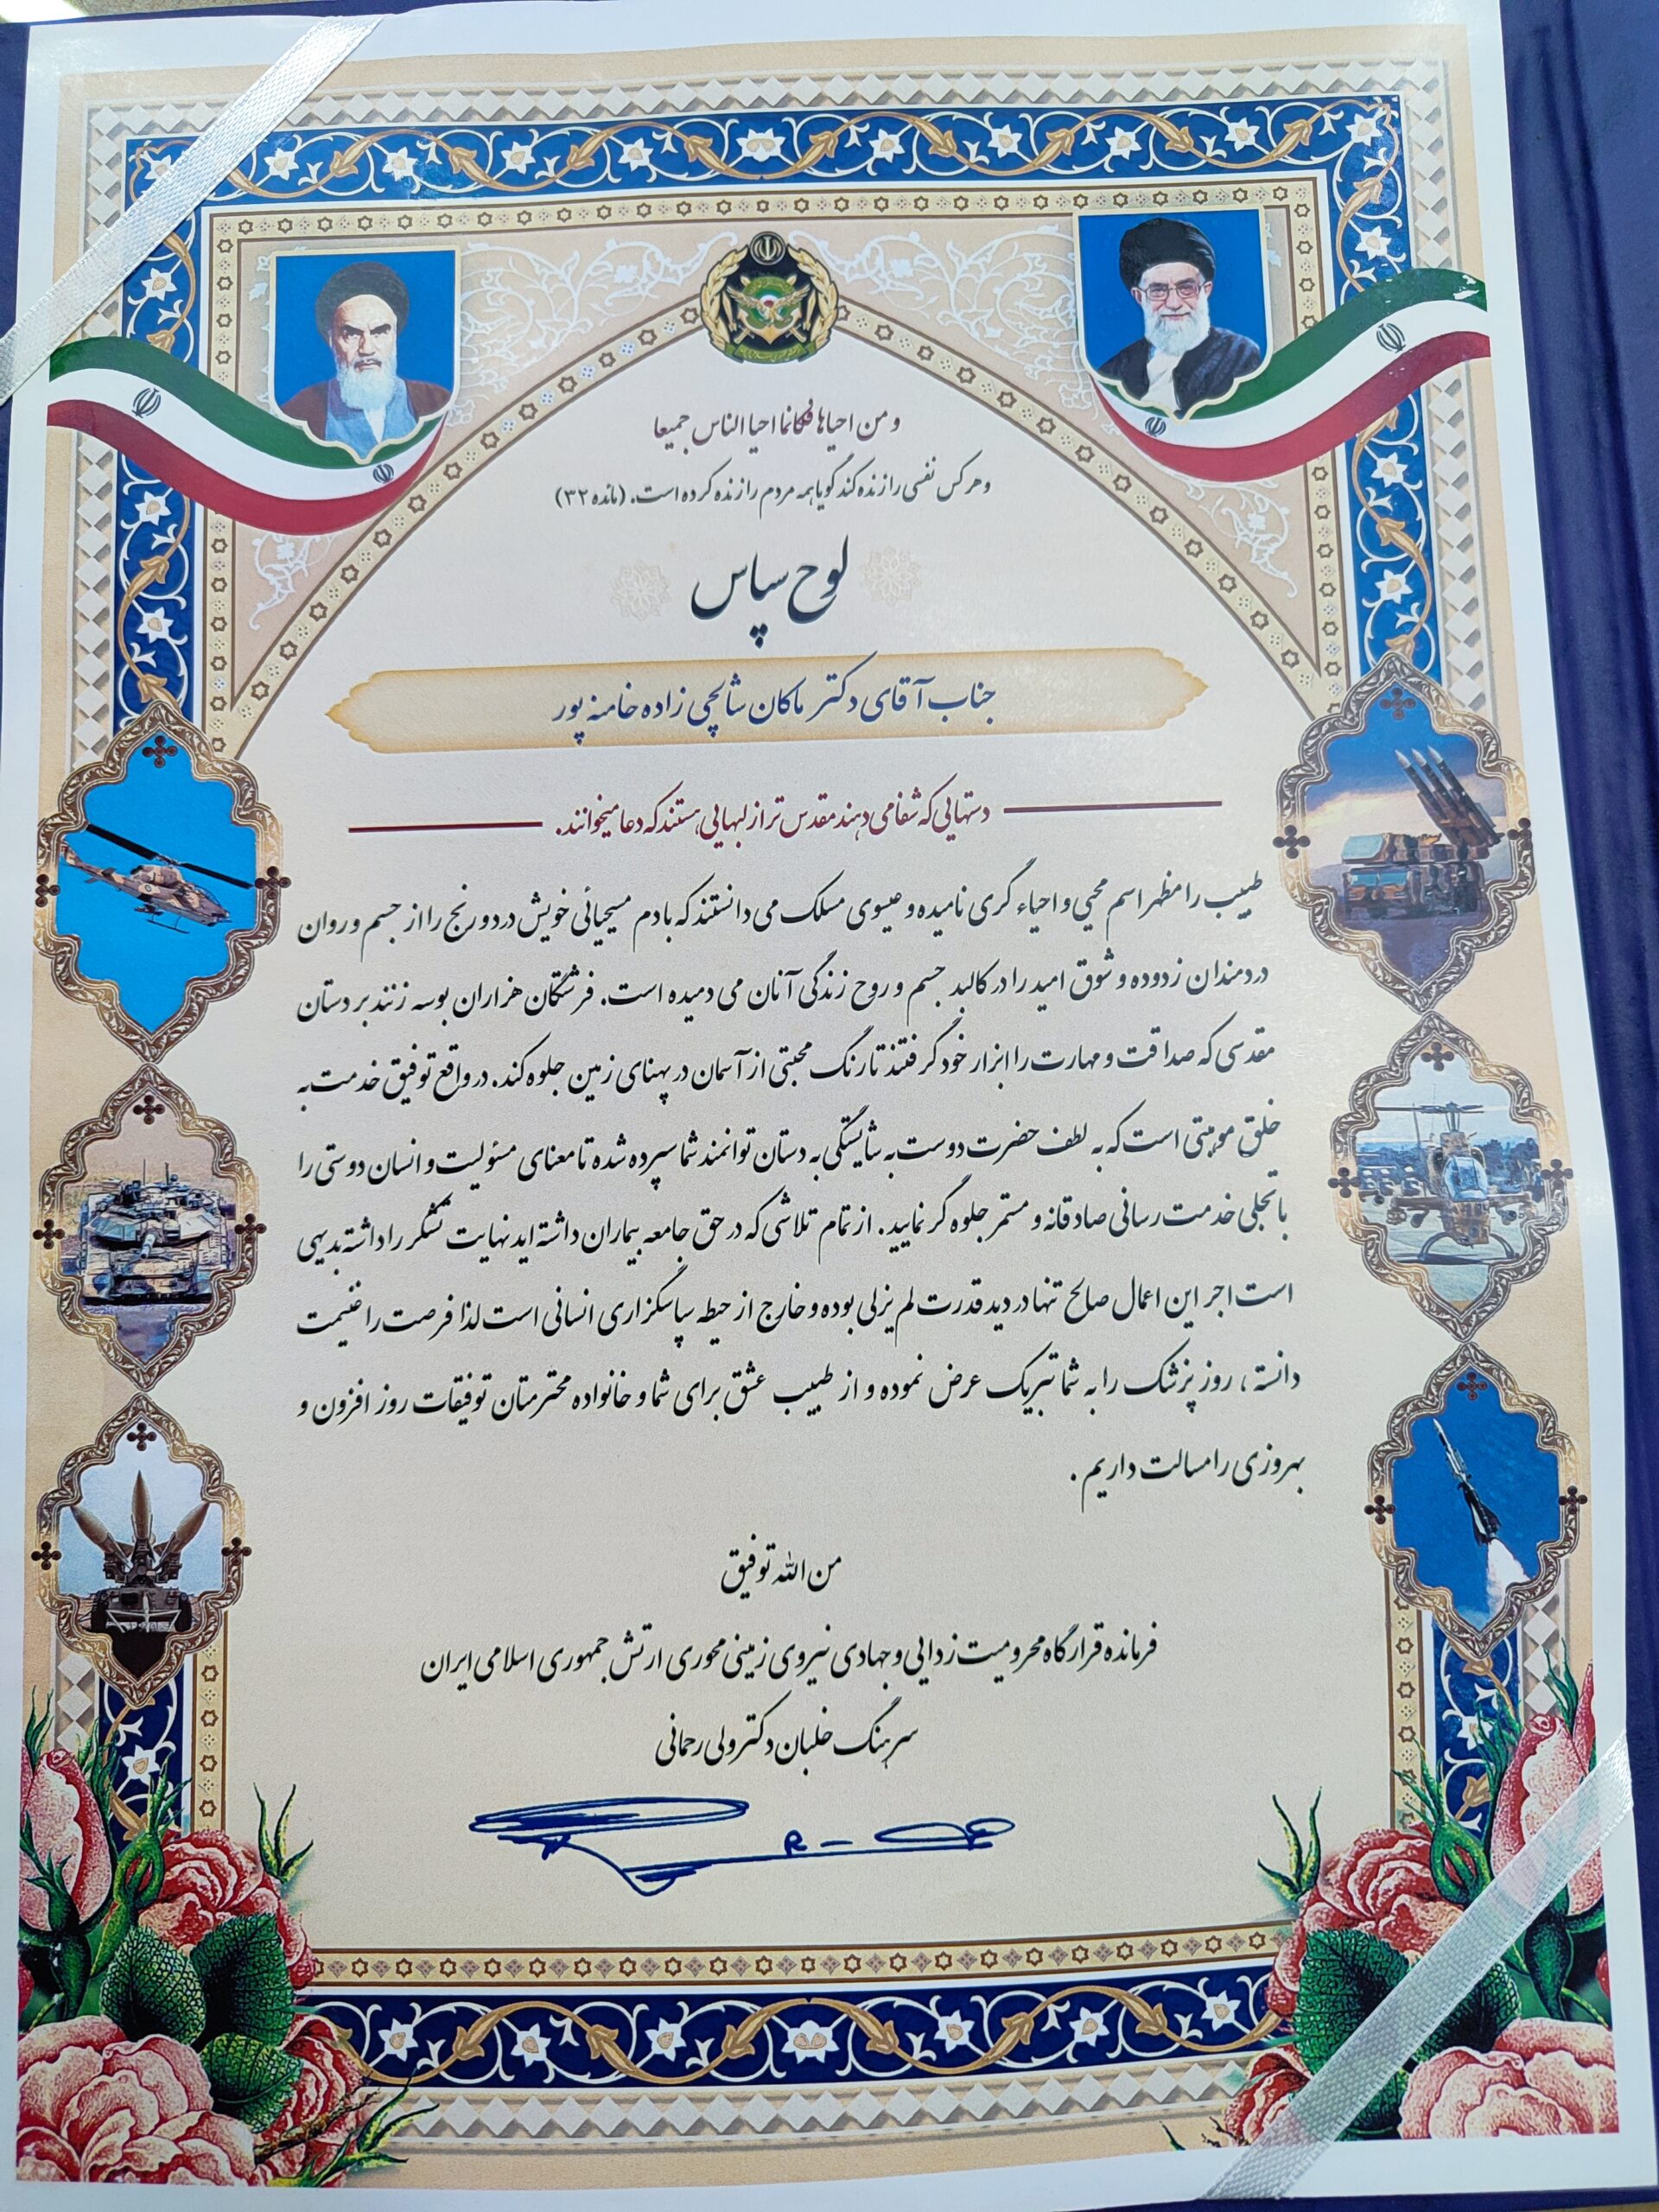 و من احیاها فکانما احیا الناس جمیعا
و هر کس نفسی را زنده کند گویا همه مردم را زنده کرده است. (مائده ۳۲)
لوح سپاس
جناب آقای دکتر ماکان شالچی زاده خامنه پور
دستهایی که شفا می دهند مقدس تر از لبهایی هستند که دعا میخوانند.
طبیب را مظهر اسم محیی و احیاء گری نامیده و عیسوی مسلک می دانستند که با دم مسیحیائی خویش درد و رنج را از جسم و روان
دردمندان زدوده و شوق امید را در کالبد جسم و روح زندگی آنان می دمیده است. فرشتگان هزاران بوسه زنند بر دستان
مقدسی که صداقت و مهارت را ابزار خود گرفتند تا رنگ محبتی از آسمان در پهنای زمین جلوه کند. در واقع توفیق خدمت به
خلق موهبتی است که به لطف حضرت دوست به شایستگی به دستان توانمند شما سپرده شده تا معنای مسئولیت و انسان دوستی را
با تجلی خدمت رسانی صادقانه و مستمر جلوه گر نمایید. از تمام تلاشی که در حق جامعه بیماران داشته اید نهایت تشکر را داشته بدیهی
است اجر این اعمال صالح تنها در ید قدرت لم یزلی بوده و خارج از حیطه سپاسگزاری انسانی است لذا فرصت را غنیمت
دانسته ، روز پزشک را به شما تبریک عرض نموده و از طبیب عشق برای شما و خانواده محترمتان توفیقات روز افزون و
بهروزی را مسالت داریم .
من الله توفیق
فرمانده قرارگاه محرومیت زدایی و جهادی نیروی زمینی محوری ارتش جمهوری اسلامی ایران
سرهنگ خلبان دکتر ولی رحمانی